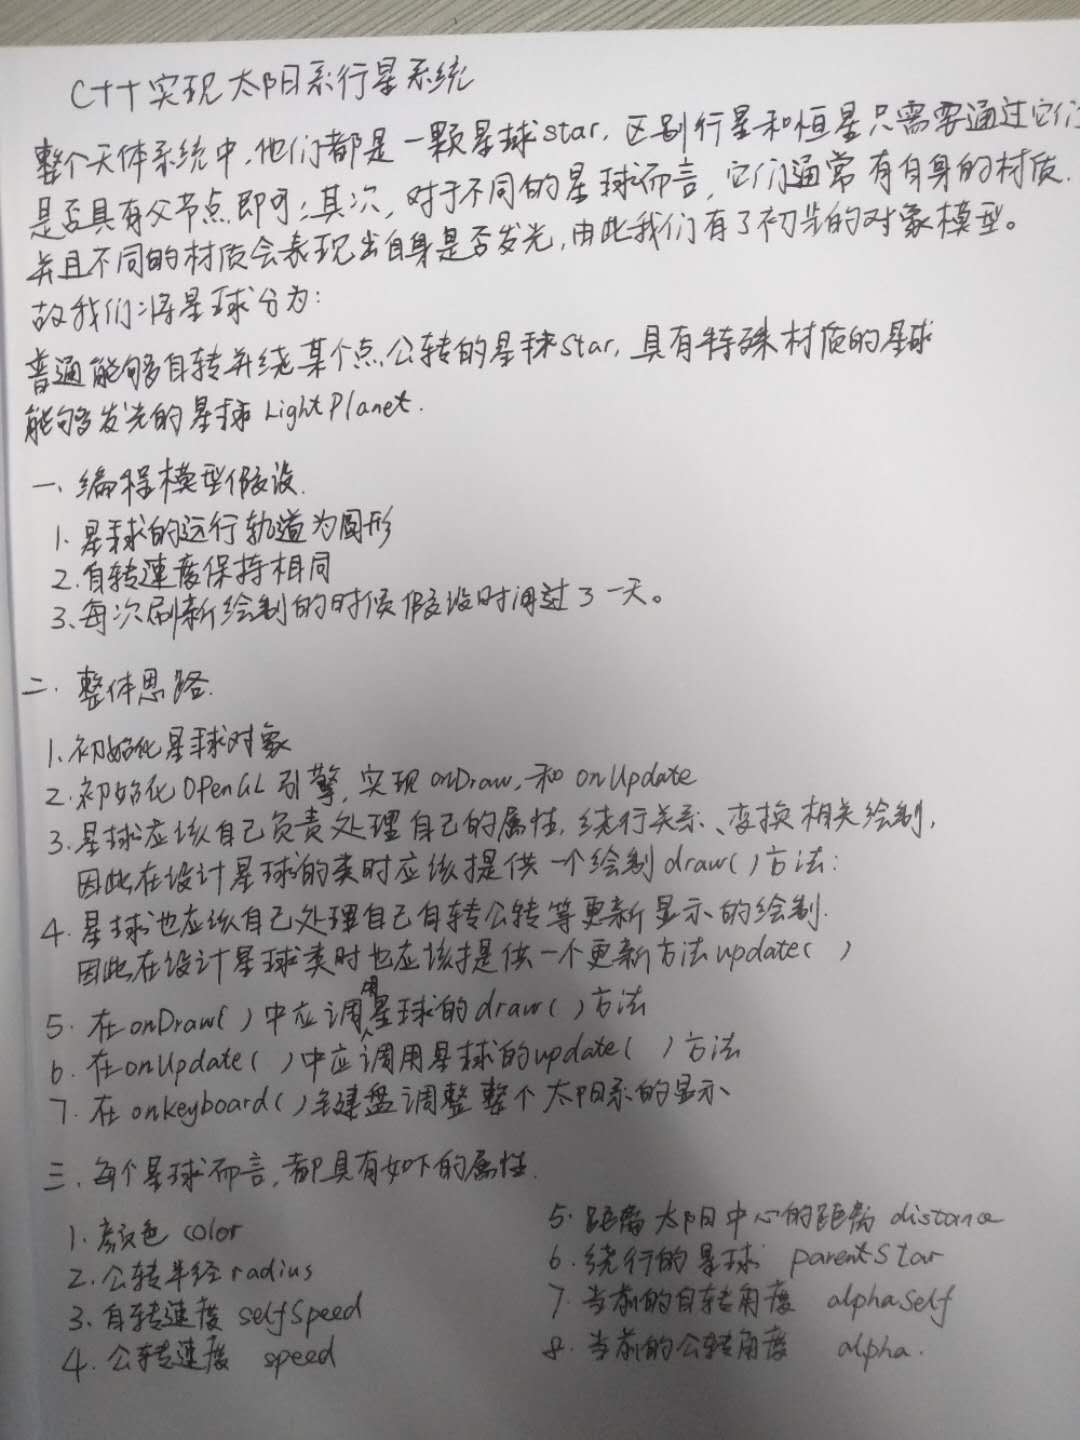 C++实现太阳系行星系统
整个天体系统中,他们都是一颗星球star,区别行星和恒星只需要通过它们
是否具有父节点即可;其次,对于不同的星球而言,它们通常有自身的材质,
并且不同的材质会表现出自身是否发光,由此我们有了初步的对象模型。
故我们将星球分为:
普通能够自转并绕某个点公转的星球star,具有特殊材质的星球
能够发光的星球 LightPlanet.
一、编程模型假设.
1.星球的运行轨道为圆形
2.自转速度保持相同
3、每次刷新绘制的时候假设时间过了一天。
二.整体思路.
1.初始化星球对象
2.初始化OpenGL引擎,实现onDraw,和onUpdate
3.星球应该自己负责处理自己的属性,绕行关系、变换相关绘制,
因此在设计星球的类时应该提供一个绘制draw()方法:
4.星球也应该自己处理自己自转公转等更新显示的绘制.
因此在设计星球类时也应该提供一个更新方法update( )
5.在onDraw()中应调用星球的draw()方法
6.在onUpdate( )中应调用星球的update( )方法
7.在onkeyboard()键盘调整整个太阳系的显示
三.每个星球而言,都具有如下的属性.
1.颜色 color
2.公转半径radius
3.自转速度 selfSpeed
4.公转速度 speed
5.距离太阳中心的距离 distance
6.绕行的星球 parentStar
7.当前的自转角度 alphaSelf
8.当前的公转角度 alpha.